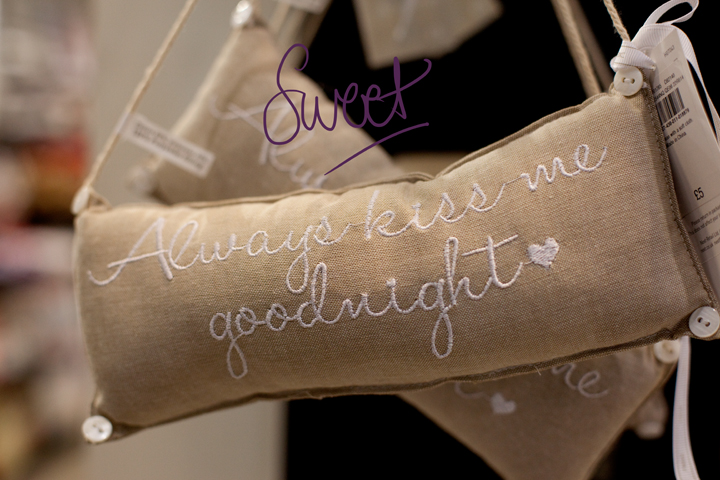 Sweet
Always kiss me
goodnight
£5